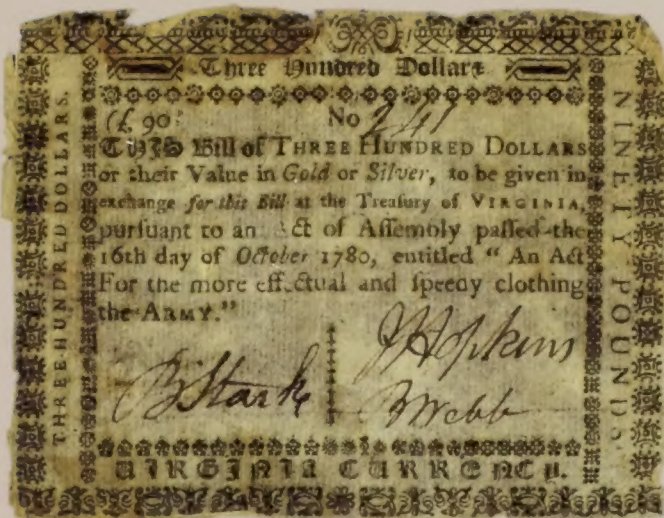 Three Hundred Dollars
(£ 90)
No 241
THIS Bill of THREE HUNDRED DOLLARS
or their Value in Gold or Silver, to be given in
exchange for this Bill at the Treaſury of VIRGINIA,
purſuant to an Act of Aſſembly paſſed the
16th day of October 1780, entitled “ An Act
For the more effectual and ſpeedy clothing
the ARMY.”
B Stark
J Hopkins
B Webb
VIRGINIA CURRENCY.
THREE HUNDRED DOLLARS.
NINETY POUNDS